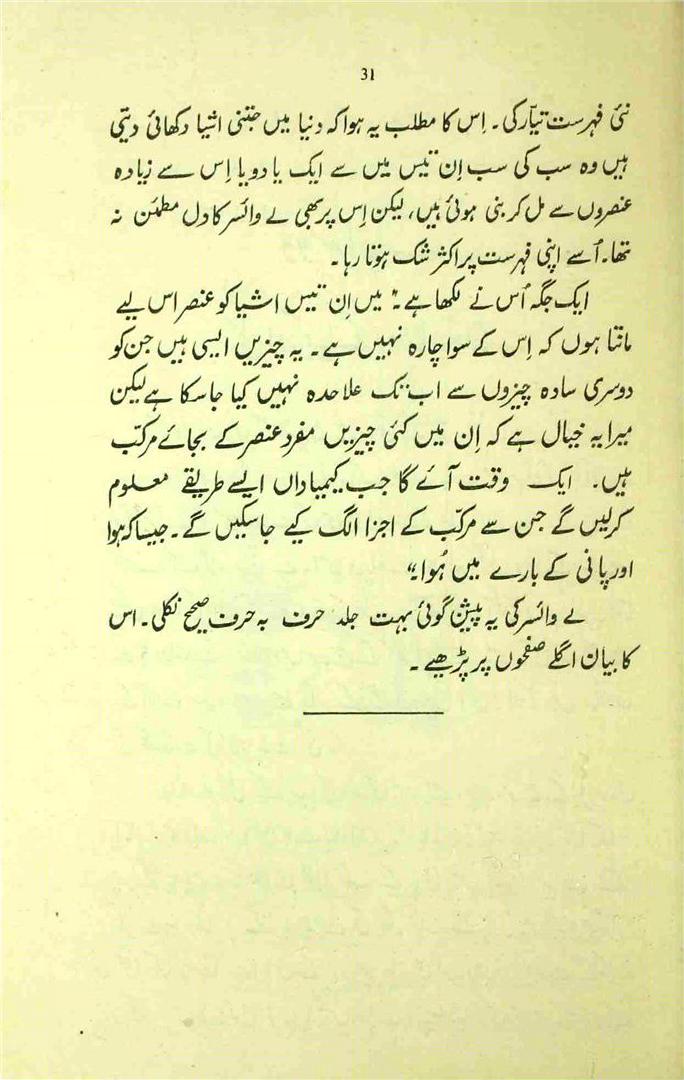 31
نئی فہرست تیّار کی۔ اِس کا مطلب یہ ہوا کہ دنیا میں جتنی اشیا دکھائی دیتی
ہیں وہ سب کی سب اِن تیس میں سے ایک یا دو یا اِس سے زیادہ
عنصروں سے مل کر بنی ہوئی ہیں، لیکن اِس پر بھی لے وائسر کا دل مطمئن نہ
تھا۔ اُسے اپنی فہرست پر اکثر شک ہوتا رہا۔
ایک جگہ اُس نے لکھا ہے۔ "میں اِن تیس اشیا کو عنصر اس لیے
مانتا ہوں کہ اِس کے سوا چارہ نہیں ہے۔ یہ چیزیں ایسی ہیں جن کو
دوسری سادہ چیزوں سے اب تک علاحدہ نہیں کیا جا سکا ہے لیکن
میرا یہ خیال ہے کہ اِن میں کئی چیزیں مفرد عنصر کے بجائے مرکّب
ہیں۔ ایک وقت آئے گا جب کیمیاداں ایسے طریقے معلوم
کرلیں گے جن سے مرکّب کے اجزا الگ کیے جاسکیں گے۔ جیسا کہ ہوا
اور پانی کے بارے میں ہُوا۔"
لے وائسر کی یہ پیشن گوئی بہت جلد حرف بہ حرف صحیح نکلی۔ اس
کا بیان اگلے صفحوں پر پڑھیے۔